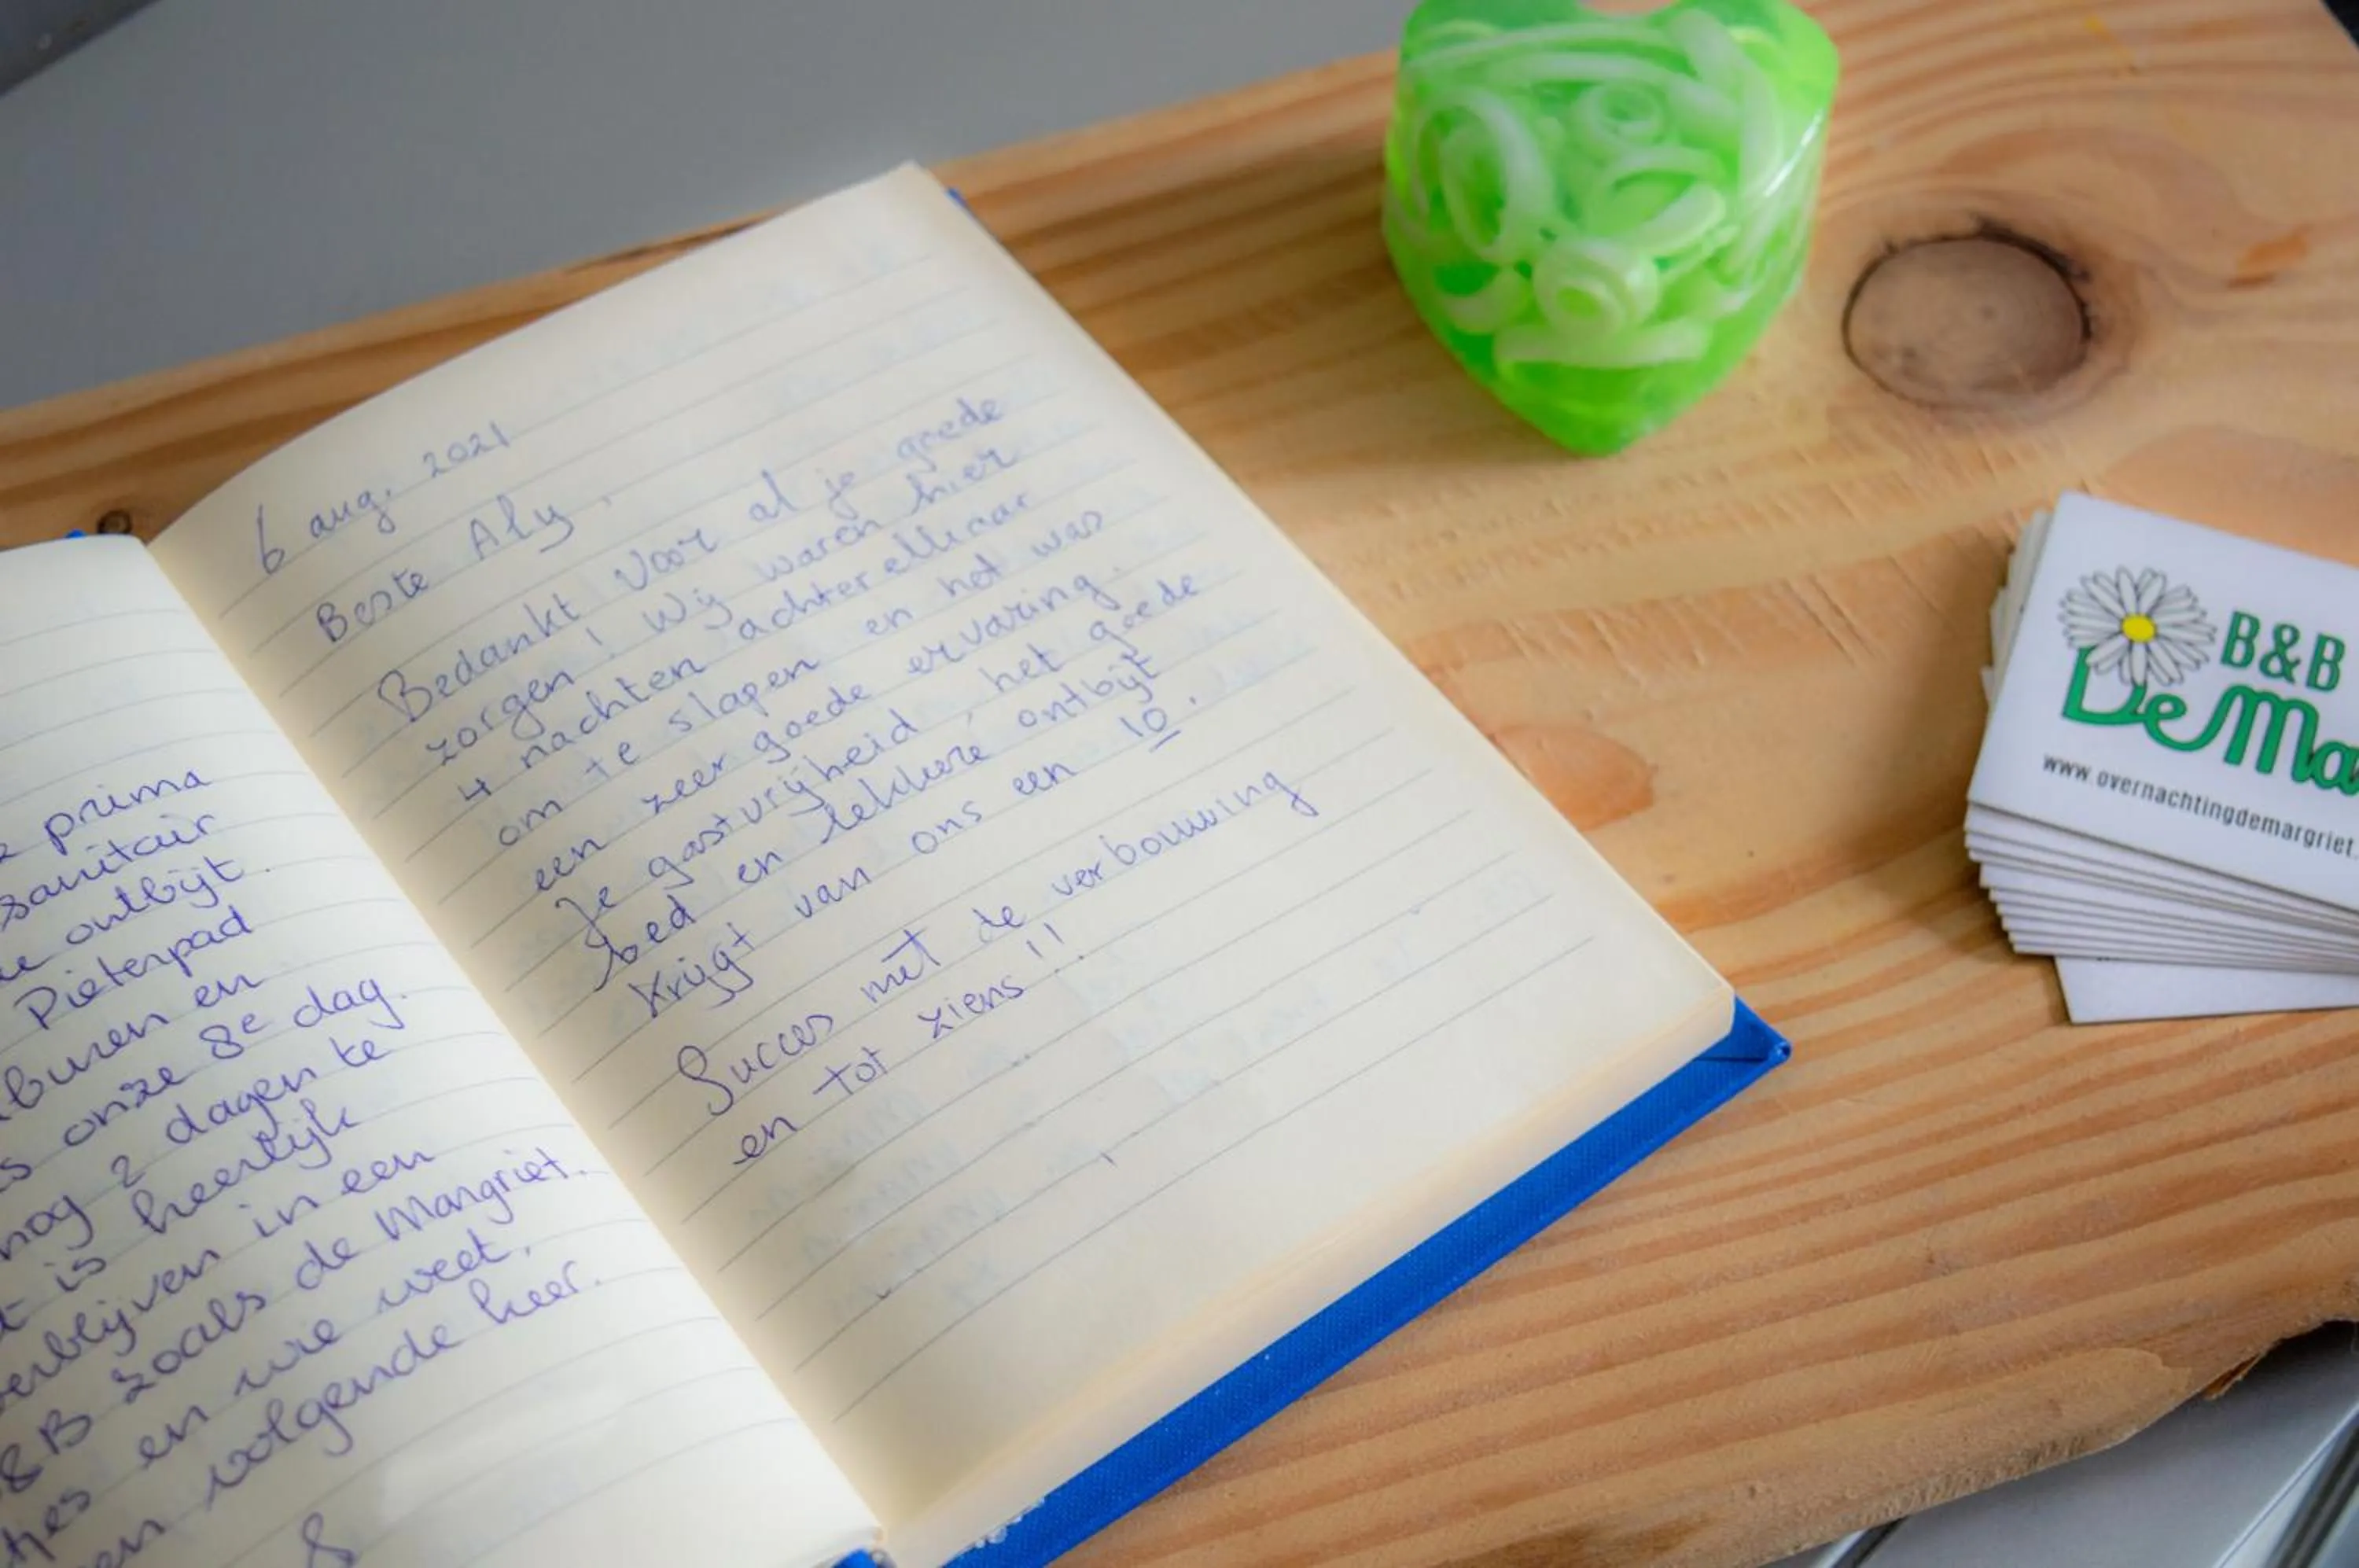 prima
sanitair
ontbijt.
Pieterpad
buren en
onze 8e dag.
nog 2 dagen te
is heerlijk
verblijven in een
B&B zoals de Margriet.
en wie weet,
volgende keer.
6 aug. 2021
Beste Aly,
Bedankt voor al je goede
zorgen! Wij waren hier
4 nachten achter elkaar
om te slapen en het was
een zeer goede ervaring.
Je gastvrijheid, het goede
bed en lekkere ontbijt
krijgt van ons een 10.
Succes met de verbouwing
en tot ziens!!
B&B
De Ma
www.overnachtingdemargriet.